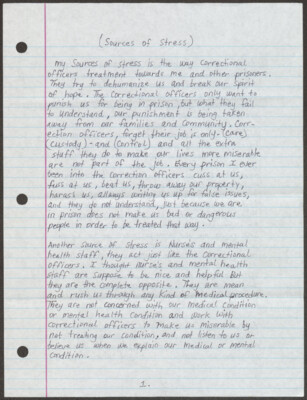 (Sources of Stress)
My Sources of stress is the way correctional
officers treatment towards me and other prisoners.
They try to dehumanize us and break our spirit
of hope. The correctional officers only want to
punish us for being in prison, but what they fail
to understand, our punishment is being taken
away from our families and community. Corr-
ection officers, forget their job is only - (care)
(custody) - and (control) and all the extra
staff they do to make our lives more miserable
are not part of the job. Every prison I ever
been into the correction officers cuss at us,
fuss at us, beat us, throw away our property,
harass us, always writing us up for false issues,
and they do not understand, just because we are
in prison does not make us bad or dangerous
people in order to be treated that way.
Another source of stress is Nurse's and mental
health staff, they act just like the correctional
officers. I thought Nurse's and mental health
staff are suppose to be nice and helpful But
they are the complete opposite. They are mean
and rush us through any kind of medical procedure.
They are not concerned with our medical condition
or mental health condition and work with
correctional officers to make us miserable by
not treating our condition, and not listen to us or
believe us when we explain our medical or mental
condition.
1.